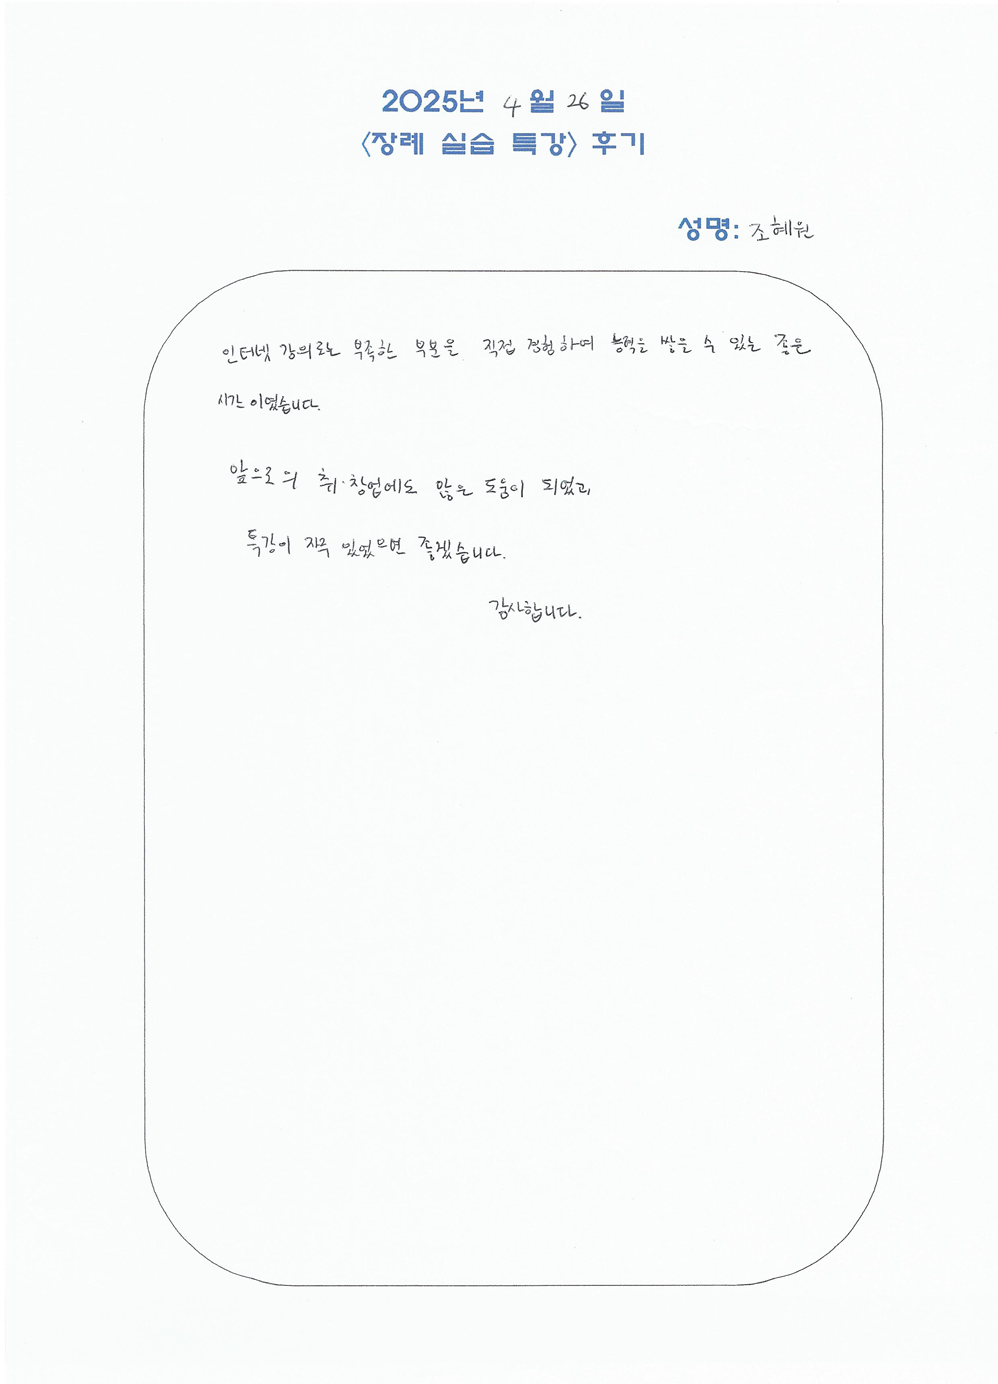 2025년 4월 26일
<장례 실습 특강> 후기
성명: 조혜원
인터넷 강의로는 부족한 부분을 직접 경험하며 능력을 쌓을 수 있는 좋은
시간이였습니다.
앞으로의 취·창업에도 많은 도움이 되었고,
특강이 자주 있었으면 좋겠습니다.
감사합니다.